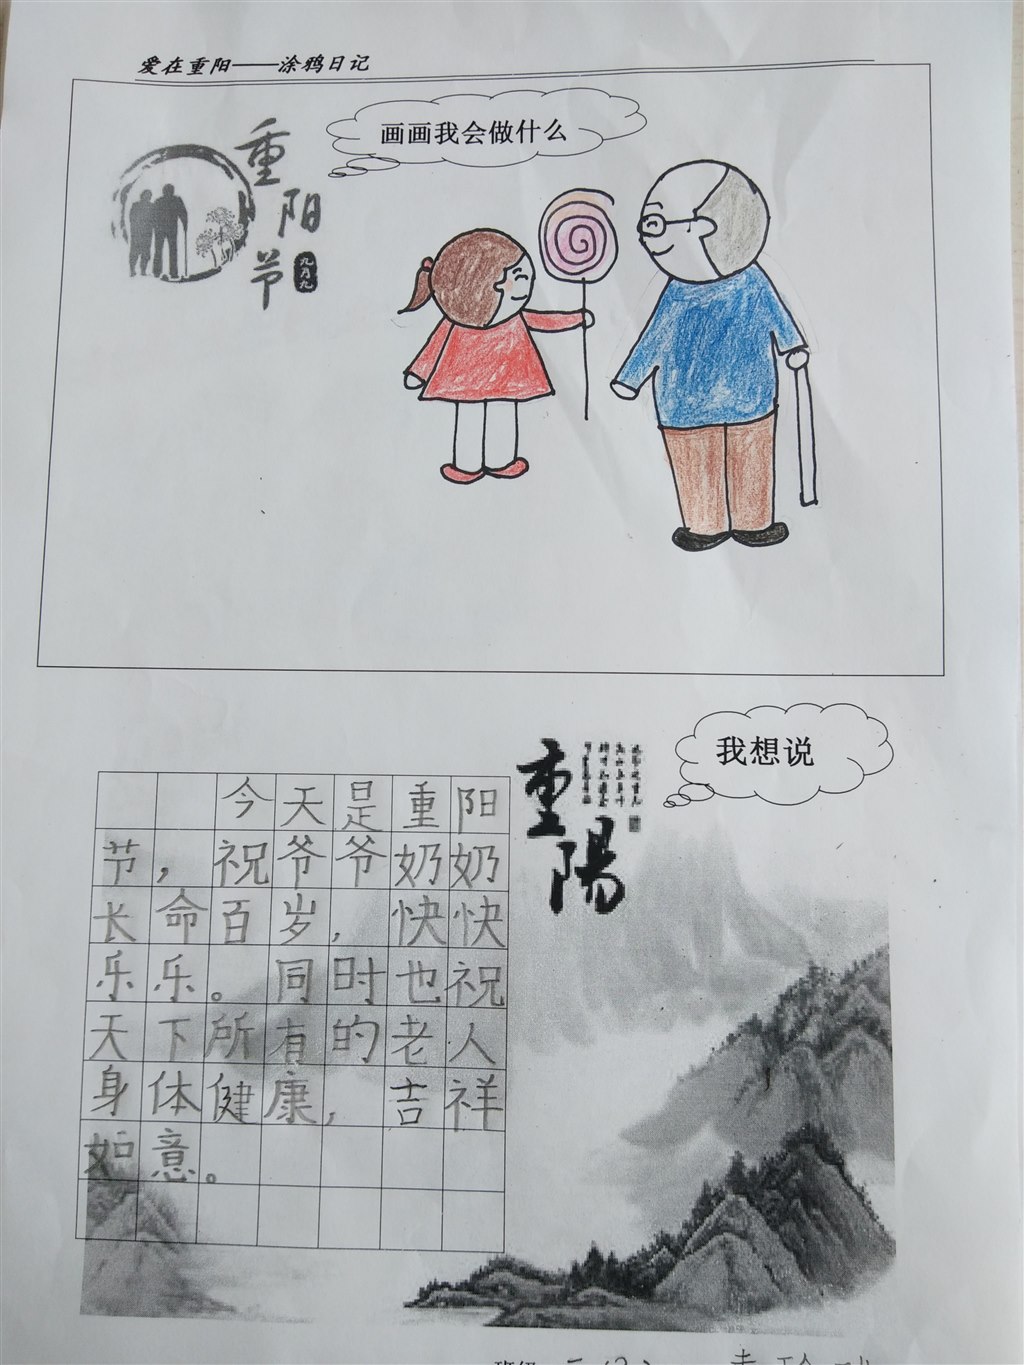 爱在重阳——涂鸦日记
重阳节
九月九
画画我会做什么
我想说
重陽
今天是重阳
节，祝爷爷奶奶
长命百岁，快快
乐乐。同时也祝
天下所有的老人
身体健康，吉祥
如意。